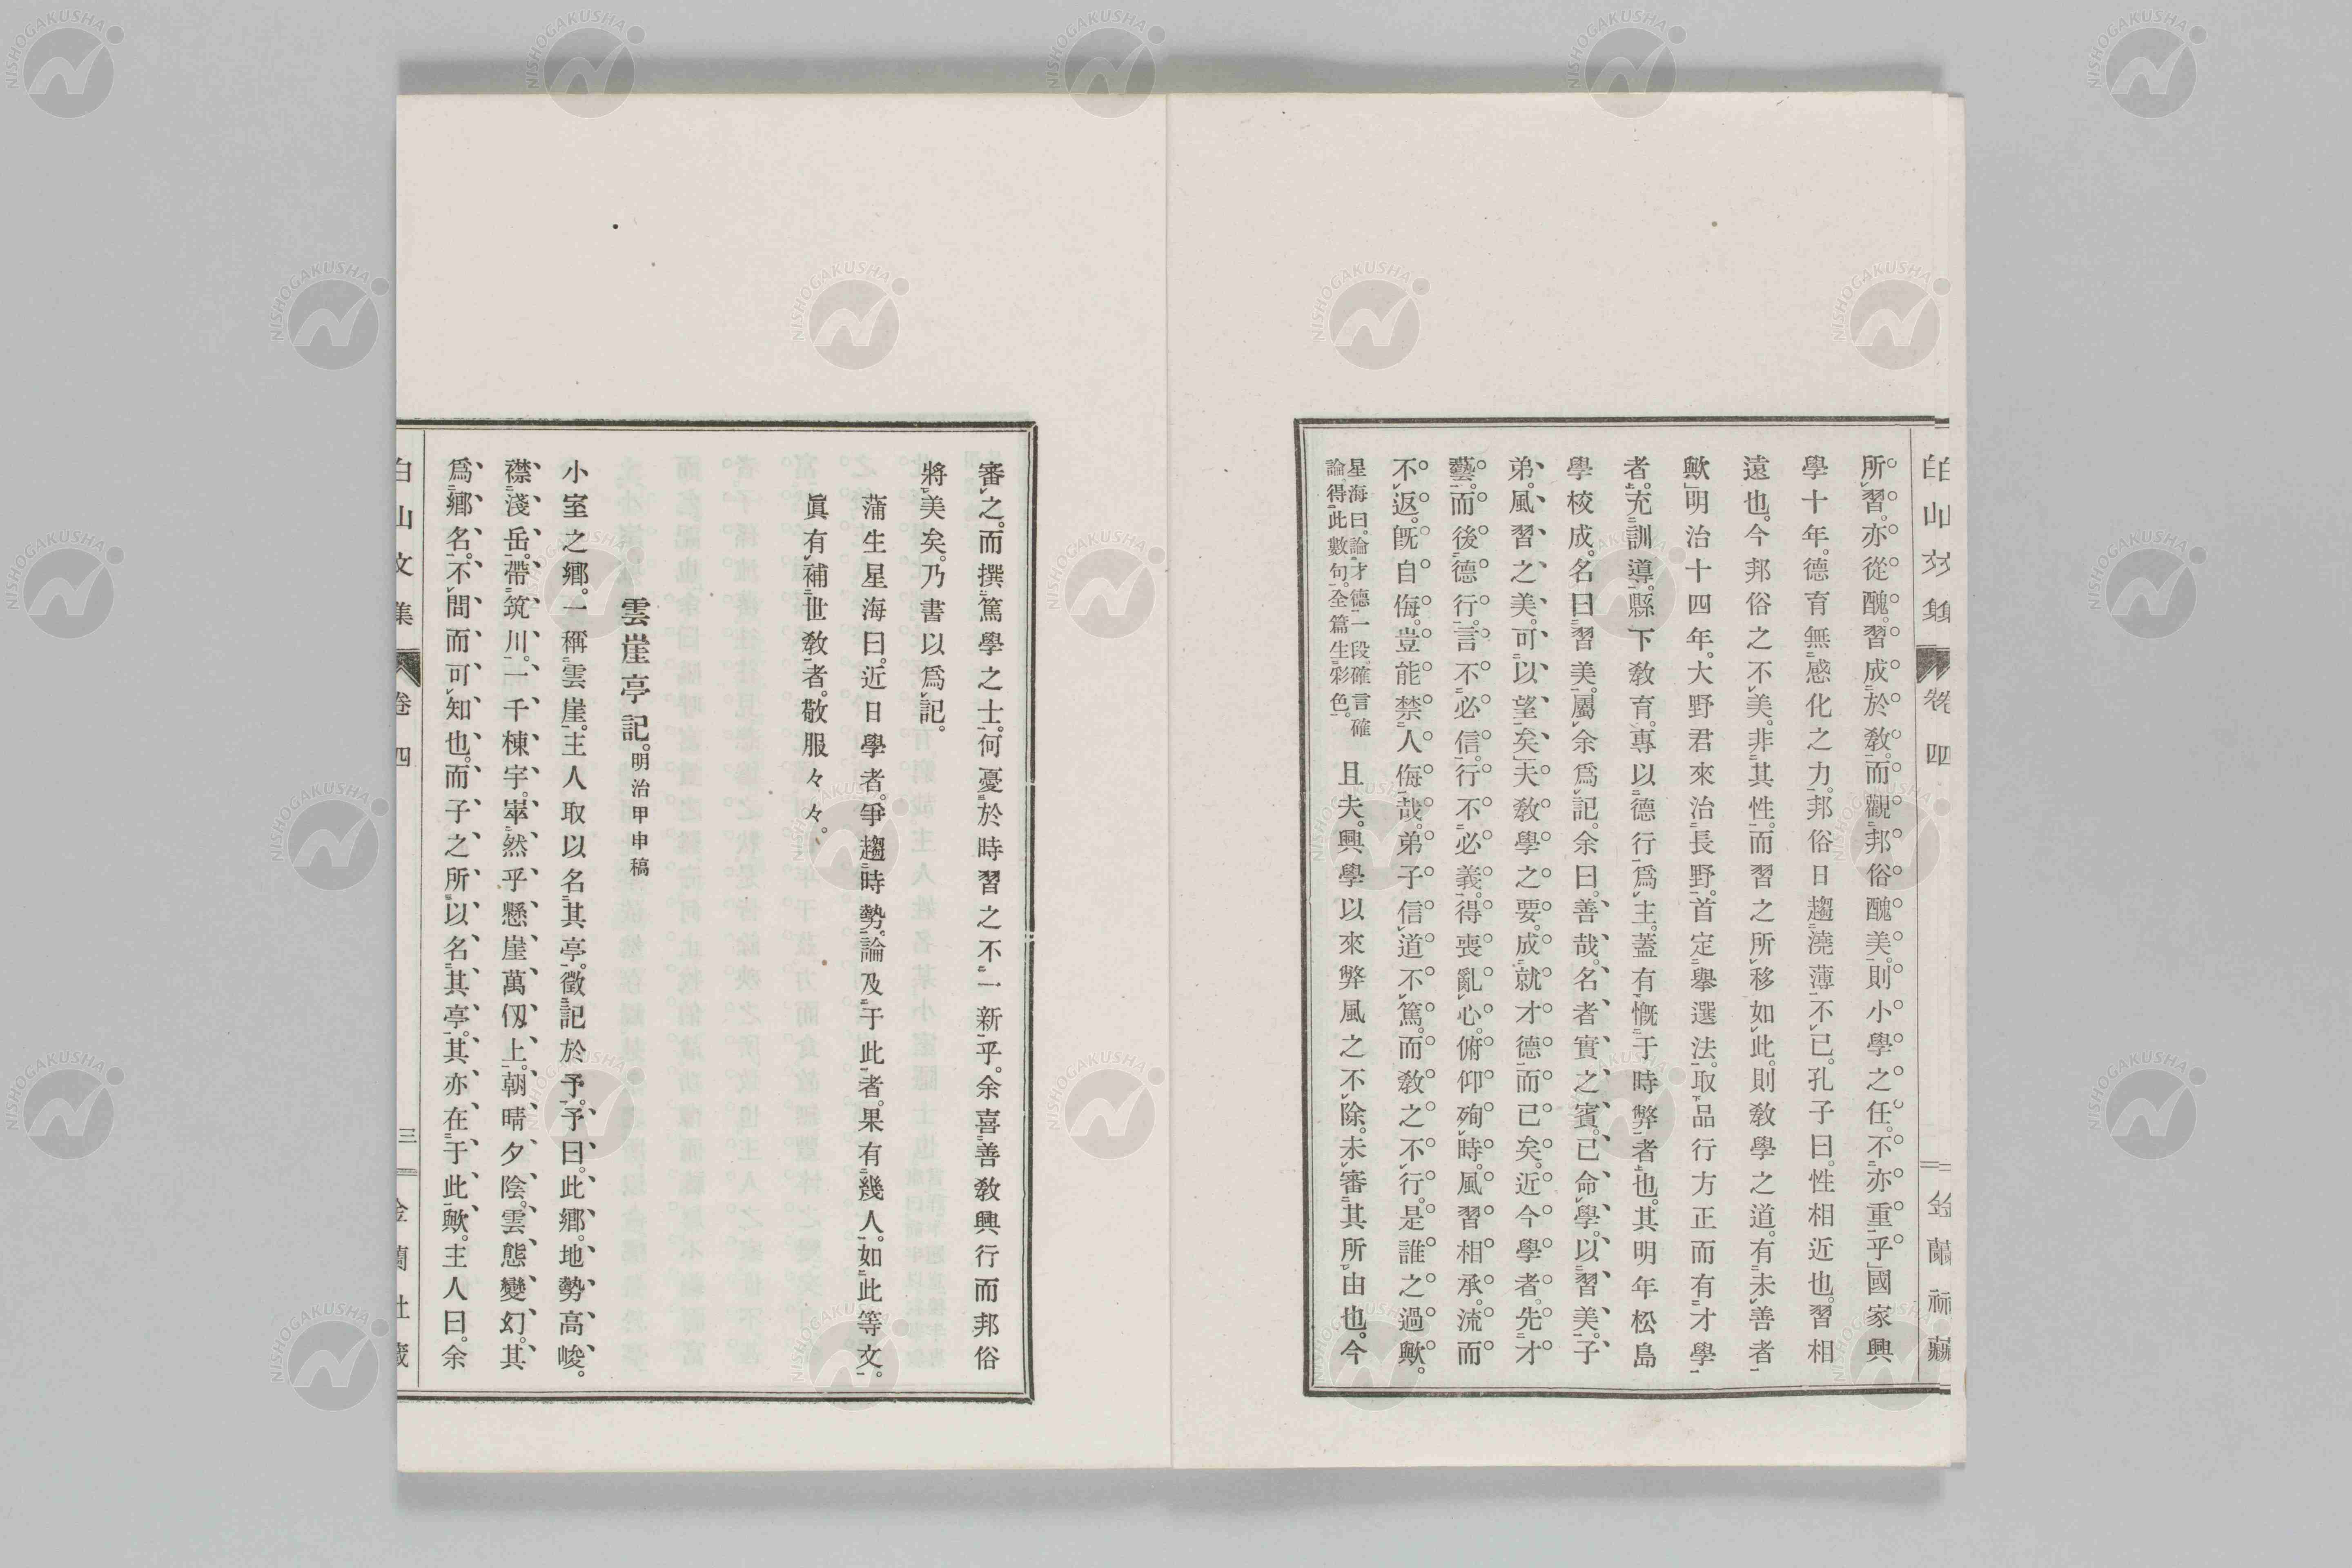 白山文集 卷四 金蘭社藏
所習。亦從醜。習成於敎。而觀邦俗醜美。則小學之任。不亦重乎」國家興
學十年。德育無感化之力。邦俗日趨澆薄不已。孔子曰。性相近也。習相
遠也。今邦俗之不美。非其性。而習之所移如此。則敎學之道。有未善者
歟」明治十四年。大野君來治長野。首定擧選法。取品行方正而有才學
者。充訓導。縣下敎育。專以德行爲主。蓋有慨于時弊者也。其明年松島
學校成。名曰習美。屬余爲記。余曰。善哉。名者實之賓。已命學。以習美。子
弟。風習之美。可以望矣」夫敎學之要。成就才德而已矣。近今學者。先才
藝。而後德行。言不必信。行不必義。得喪亂心。俯仰殉時。風習相承。流而
不返。旣自侮。豈能禁人侮哉。弟子信道不篤。而敎之不行。是誰之過歟。
星海曰。論才德一段。確言確
論。得此數句。全篇生彩色。
且夫。興學以來弊風之不除。未審其所由也。今
審之。而撰篤學之士。何憂於時習之不一新乎。余喜善敎興行而邦俗
將美矣。乃書以爲記。
蒲生星海曰。近日學者。爭趨時勢。論及于此者。果有幾人。如此等文。
眞有補世敎者。敬服々々。
雲崖亭記。明治甲申稿
小室之鄕。一稱雲崖。主人取以名其亭。徵記於予。予曰。此鄕。地勢高峻。
襟淺岳。帶筑川。一千棟宇。崒然乎懸崖萬仭上。朝晴夕陰。雲態變幻。其
爲鄕名。不問而可知也。而子之所以名其亭。其亦在于此歟。主人曰。余
白山文集 卷四 三 金蘭社藏